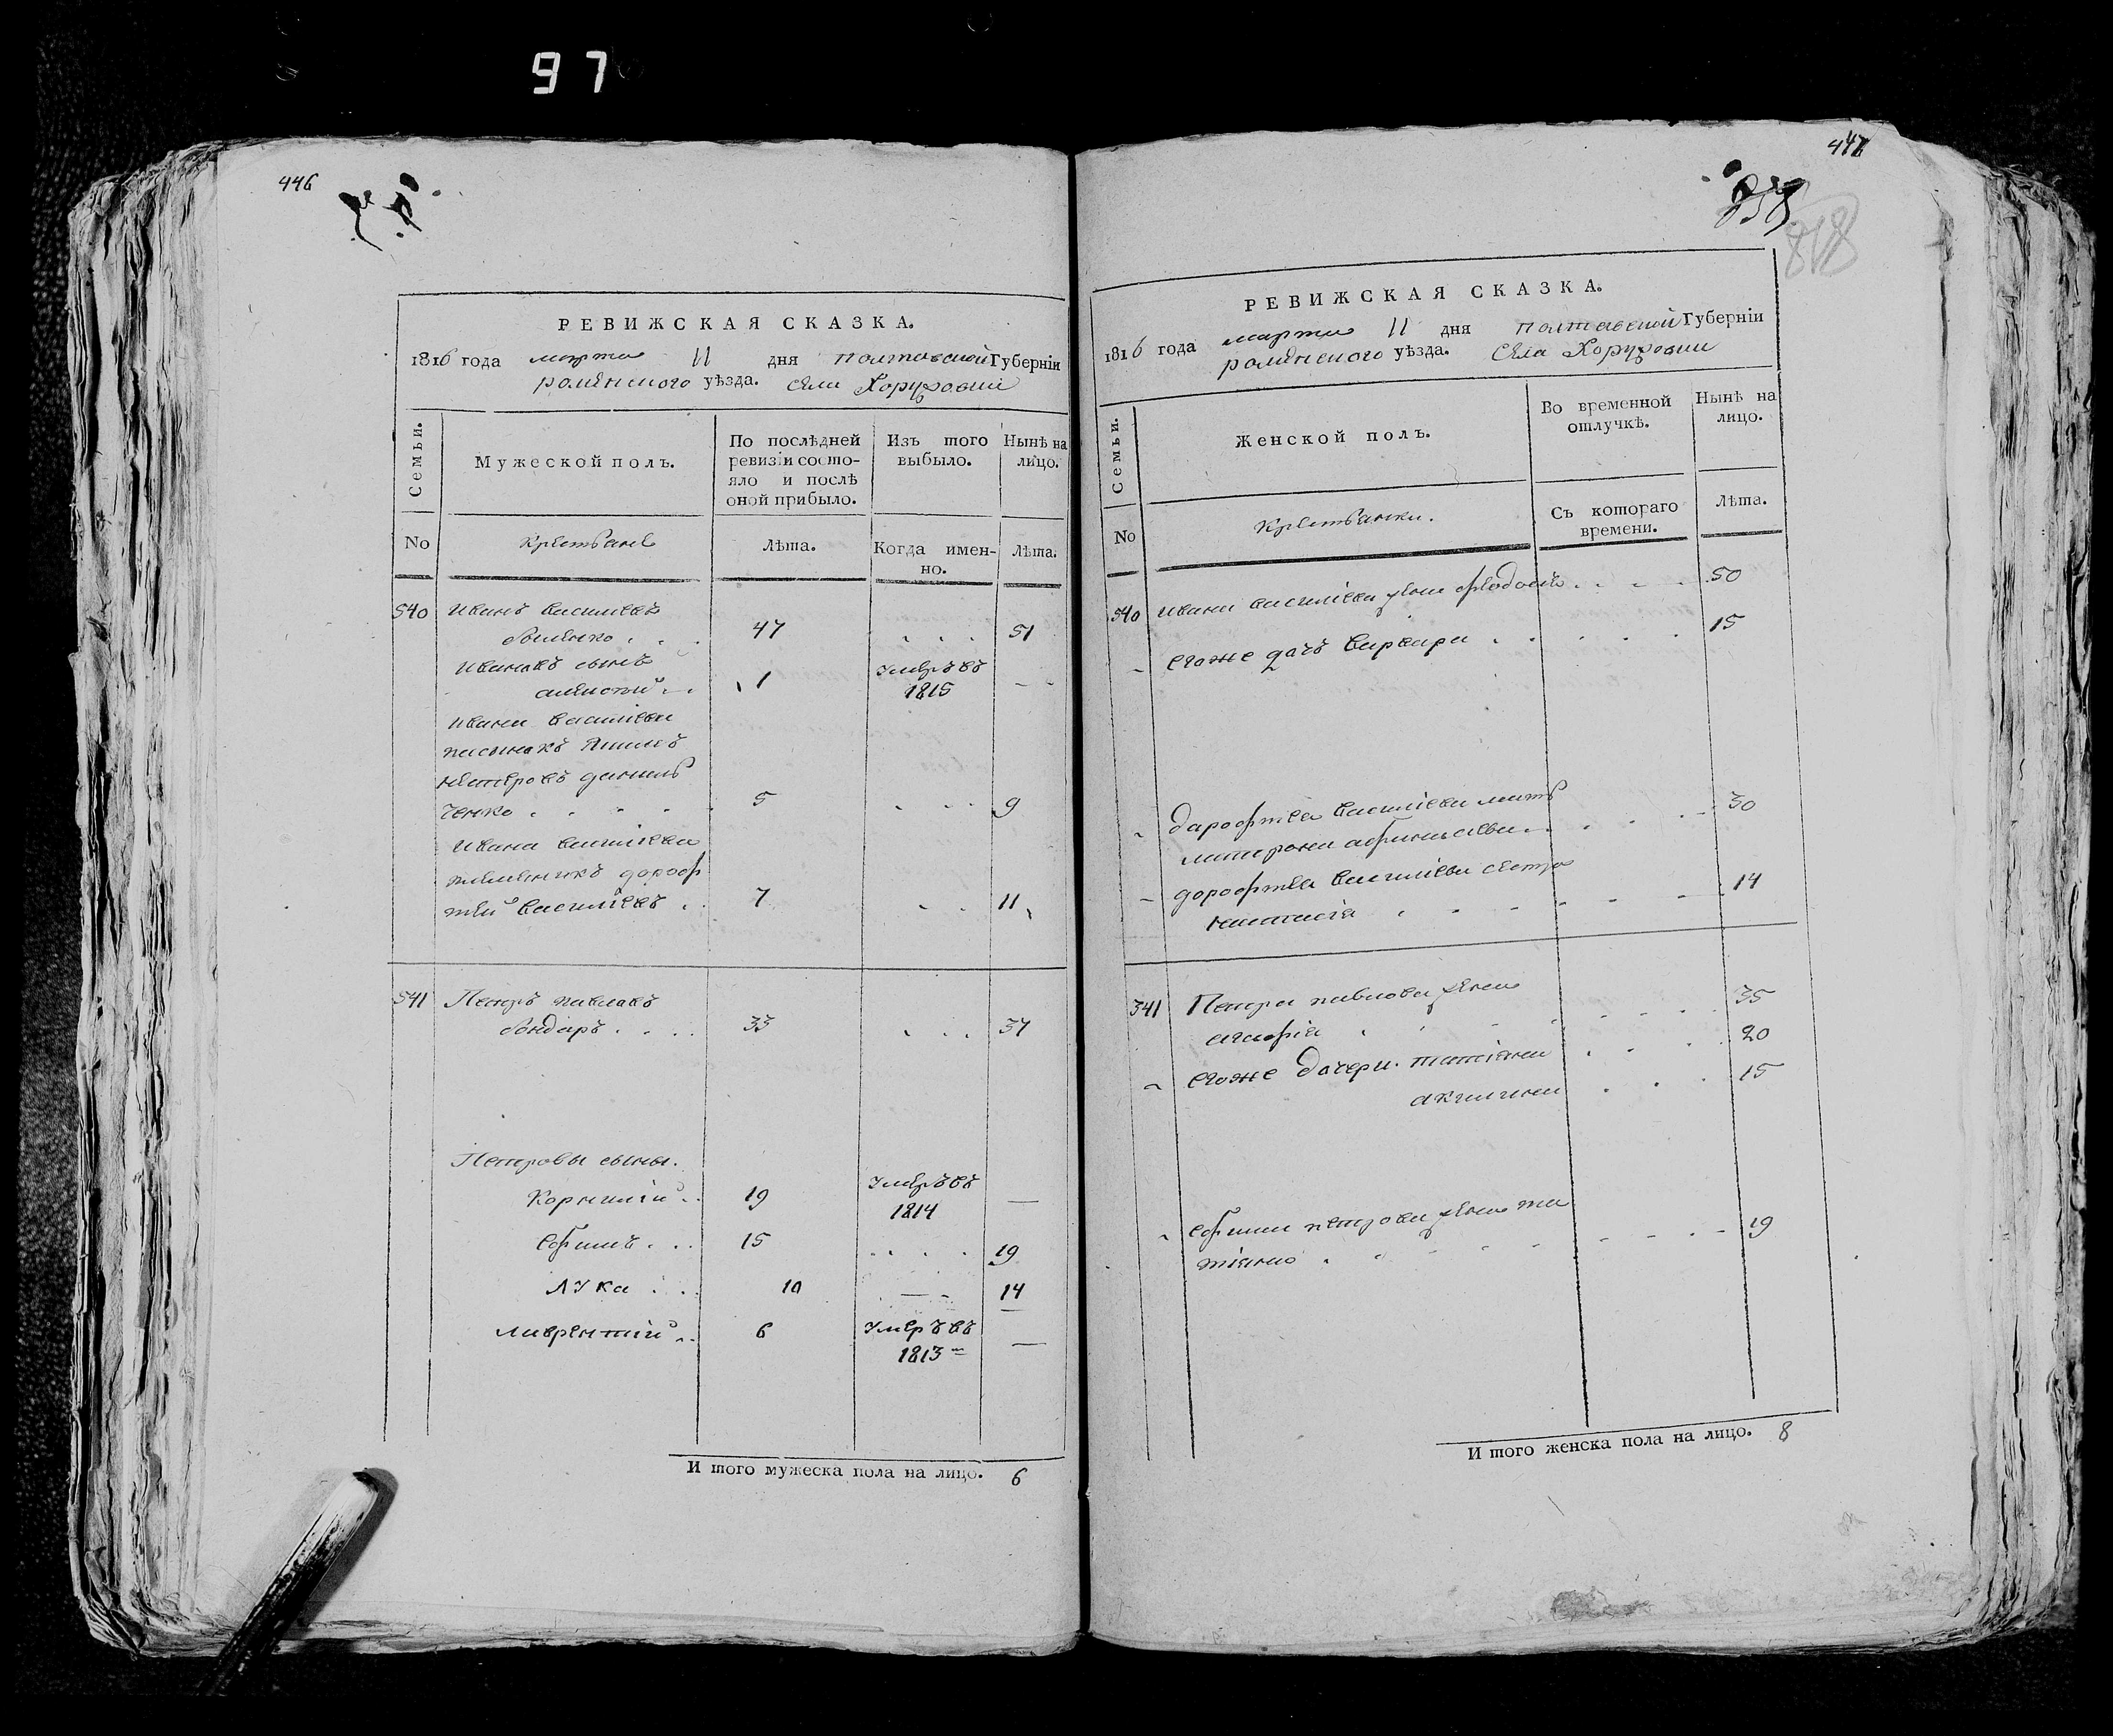 97
446
РЕВИЖСКАЯ СКАЗКА.
1816 года марта 11 дня полтавской Губерніи
роменского уѣзда. села Хоружовки
Семьи.
Мужеской полъ.
По послѣдней ревизіи состояло и послѣ оной прибыло.
Изъ того выбыло.
Нынѣ на лицо.
No
Крестьяне
Лѣта.
Когда именно.
Лѣта.
540 Иванъ василіевъ
47 51
Ивановъ сынъ
алексѣй 1 умеръ въ 1815
Ивана василіева
пасынокъ
петровъ данильченко 5 9
Ивана василіева
племенникъ дорофтей василіевъ 7 11
541 Петръ павловъ
бондаръ 33 37
Петровы сыны.
Корнилій 19 умеръ въ 1814
Ефимъ 15 19
лука 10 14
лаврентій 6 умеръ въ 1813
И того мужеска пола на лицо. 6
447
РЕВИЖСКАЯ СКАЗКА.
1816 года марта 11 дня полтавской Губерніи
роменского уѣзда. села Хоружовки
Семьи.
Женской полъ.
Во временной отлучкѣ.
Нынѣ на лицо.
No
Крестьянки.
Съ котораго времени.
Лѣта.
540 Ивана василіева жена 50
егоже дочъ варвара 15
дарофтея василіева мать
матрона 30
дорофтея василіева сестра
14
341 Петра павлова жена
агафія 35
егоже дочери. татіана 20
акилина 15
ефима петрова жена татіана 19
И того женска пола на лицо. 8